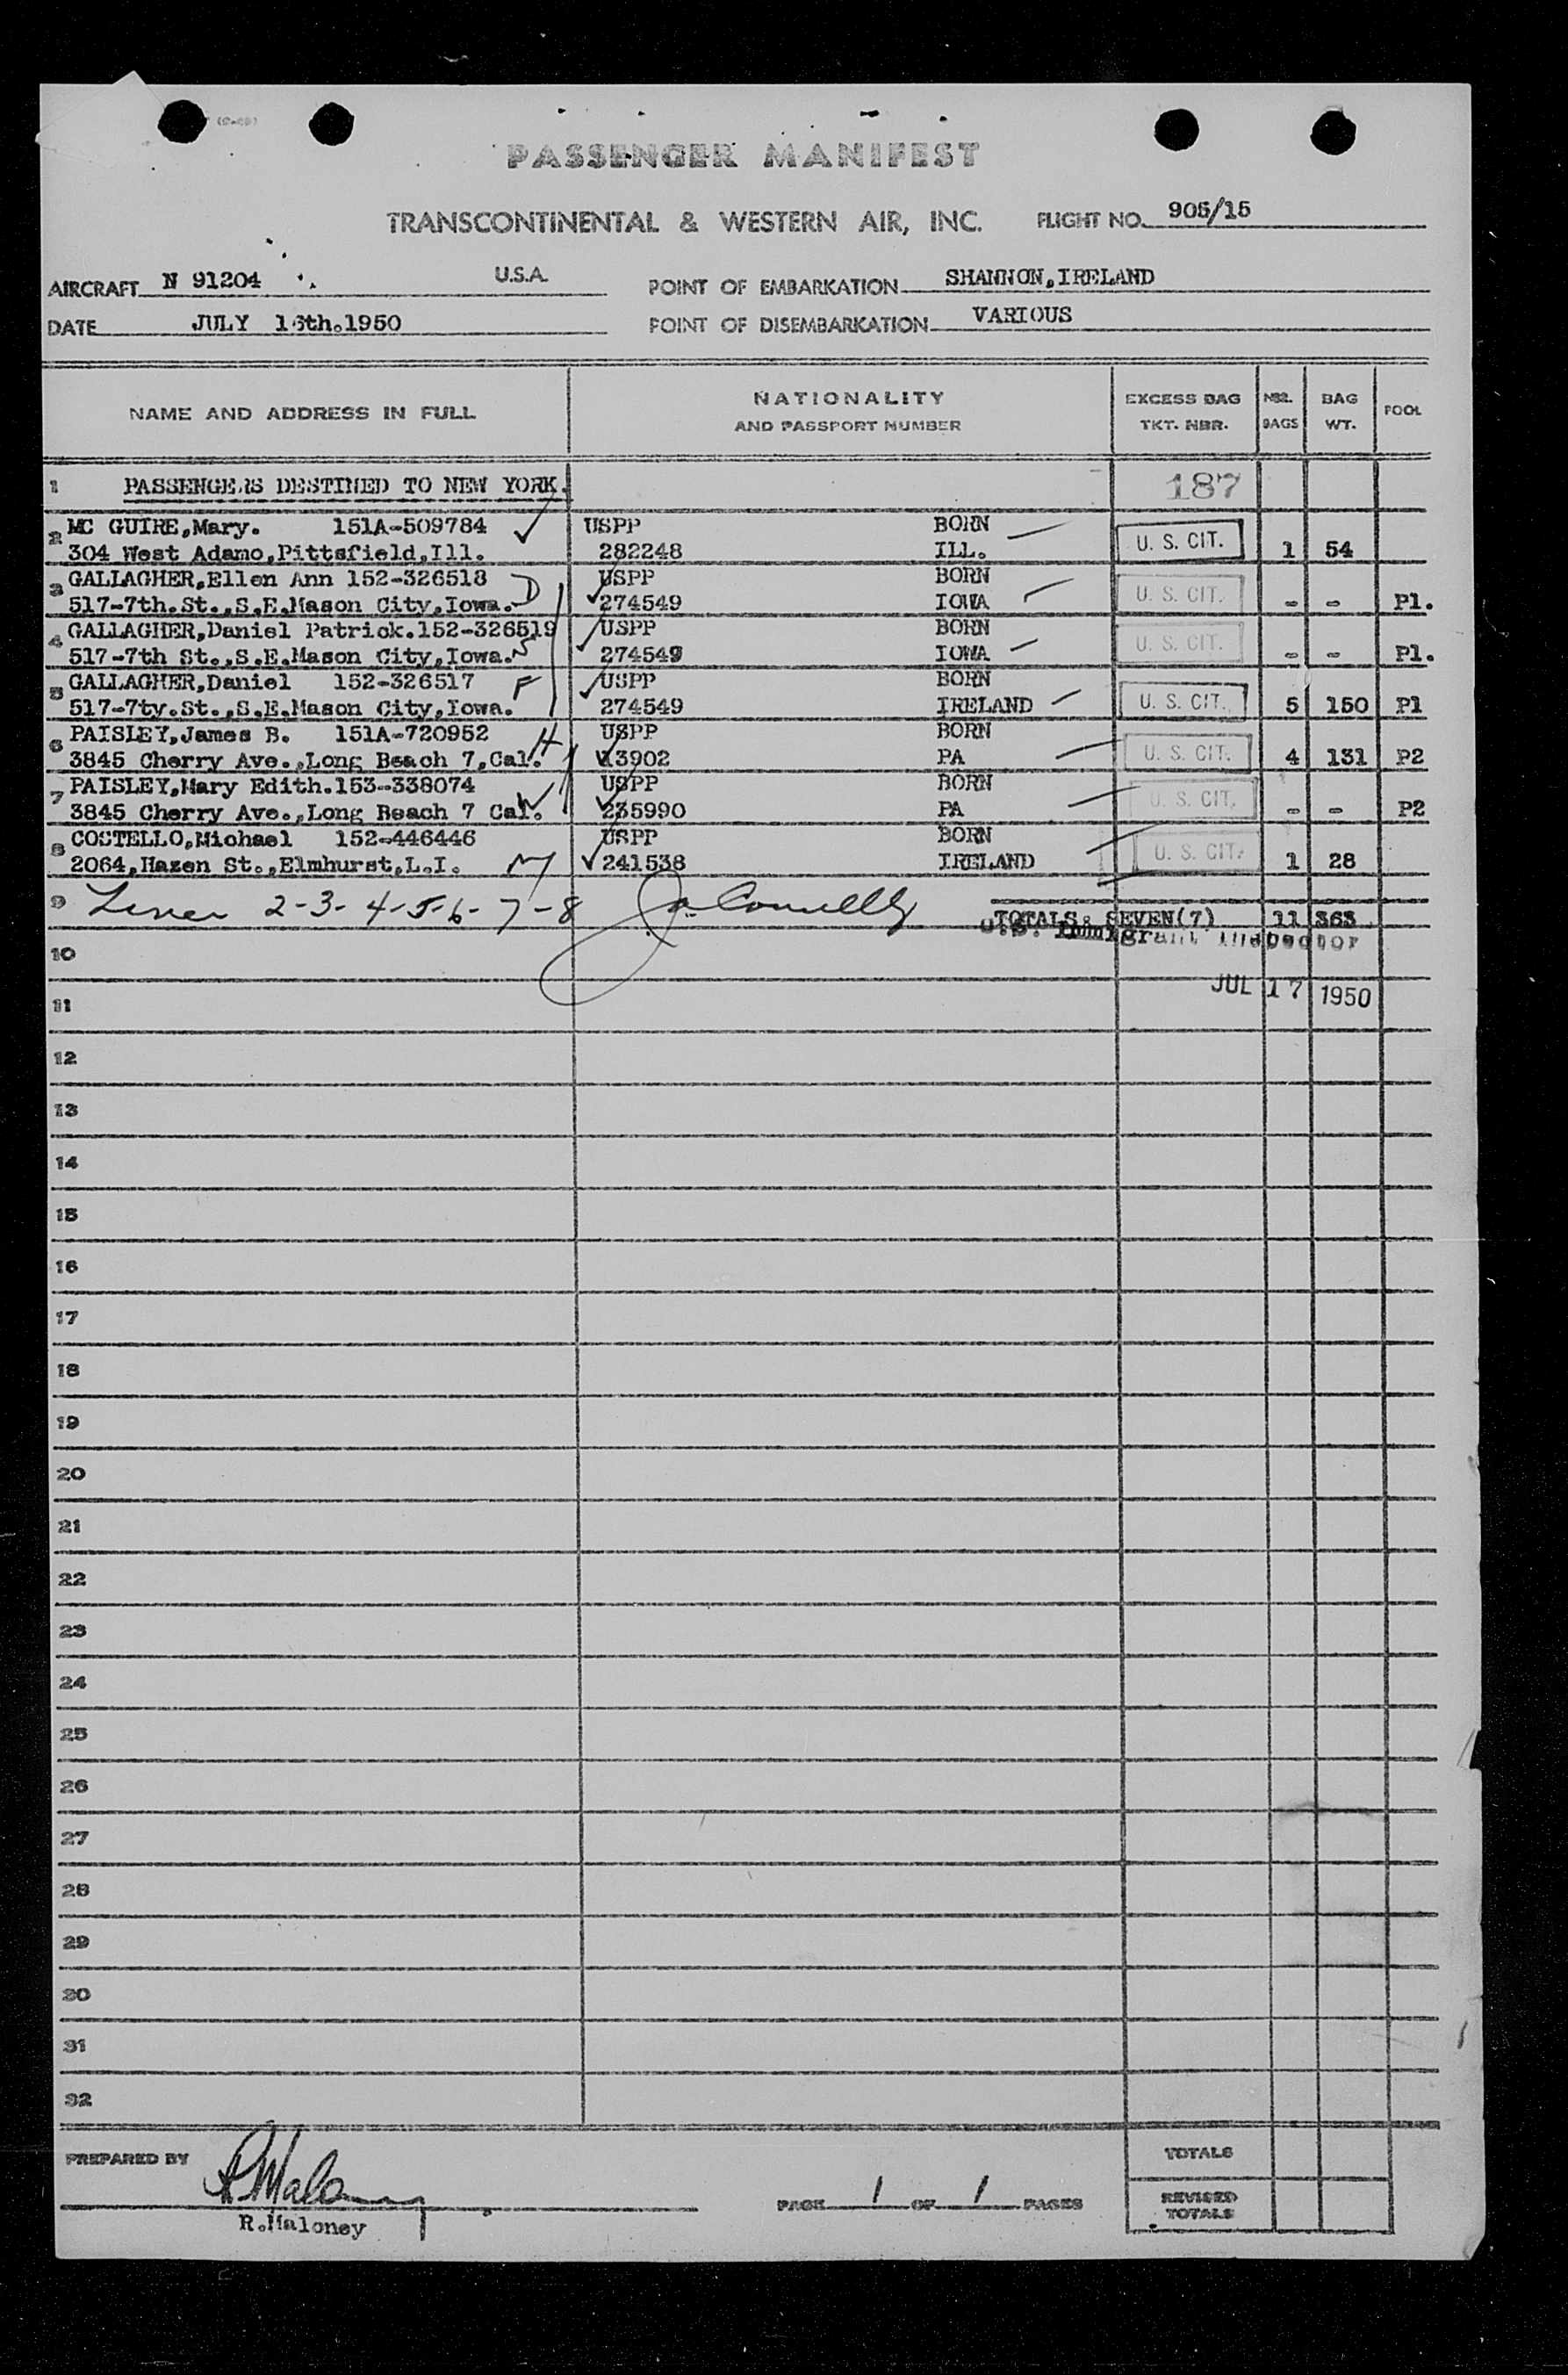 PASSENGER MANIFEST
TRANSCONTINENTAL & WESTERN AIR, INC. FLIGHT NO. 905/15
AIRCRAFT N 91204 U.S.A. POINT OF EMBARKATION SHANNON, IRELAND
DATE JULY 16th.1950 POINT OF DISEMBARKATION VARIOUS
NAME AND ADDRESS IN FULL NATIONALITY AND PASSPORT NUMBER EXCESS BAG TKT. NBR. NBR. BAGS BAG WT. POOL
1 PASSENGERS DESTINED TO NEW YORK. 187
2 MC GUIRE,Mary. 151A-509784 USPP BORN U. S. CIT.
304 West Adamo,Pittsfield,Ill. 282248 ILL. 1 54
3 GALLAGHER,Ellen Ann 152-326518 D USPP BORN U. S. CIT.
517-7th.St.,S.E.Mason City,Iowa. 274549 IOWA - - P1.
4 GALLAGHER,Daniel Patrick.152-326519 USPP BORN U. S. CIT.
517-7th St.,S.E.Mason City,Iowa. S 274549 IOWA - - P1.
5 GALLAGHER,Daniel 152-326517 F USPP BORN U. S. CIT.
517-7ty.St.,S.E.Mason City,Iowa. 274549 IRELAND 5 150 P1
6 PAISLEY,James B. 151A-720952 H USPP BORN U. S. CIT.
3845 Cherry Ave.,Long Beach 7,Cal. 13902 PA 4 131 P2
7 PAISLEY,Mary Edith.153-338074 W USPP BORN U. S. CIT.
3845 Cherry Ave.,Long Beach 7 Cal. 235990 PA - - P2
8 COSTELLO,Michael 152-446446 USPP BORN U. S. CIT.
2064,Hazen St.,Elmhurst,L.I. M 241538 IRELAND 1 28
9 2-3-4-5-6-7-8 TOTALS: SEVEN(7) 11 363
U.S. Immigrant Inspector
10
JUL 17 1950
11
12
13
14
15
16
17
18
19
20
21
22
23
24
25
26
27
28
29
30
31
32
PREPARED BY R Maloney TOTALS
PAGE 1 OF 1 PAGES REVISED TOTALS
R.Maloney